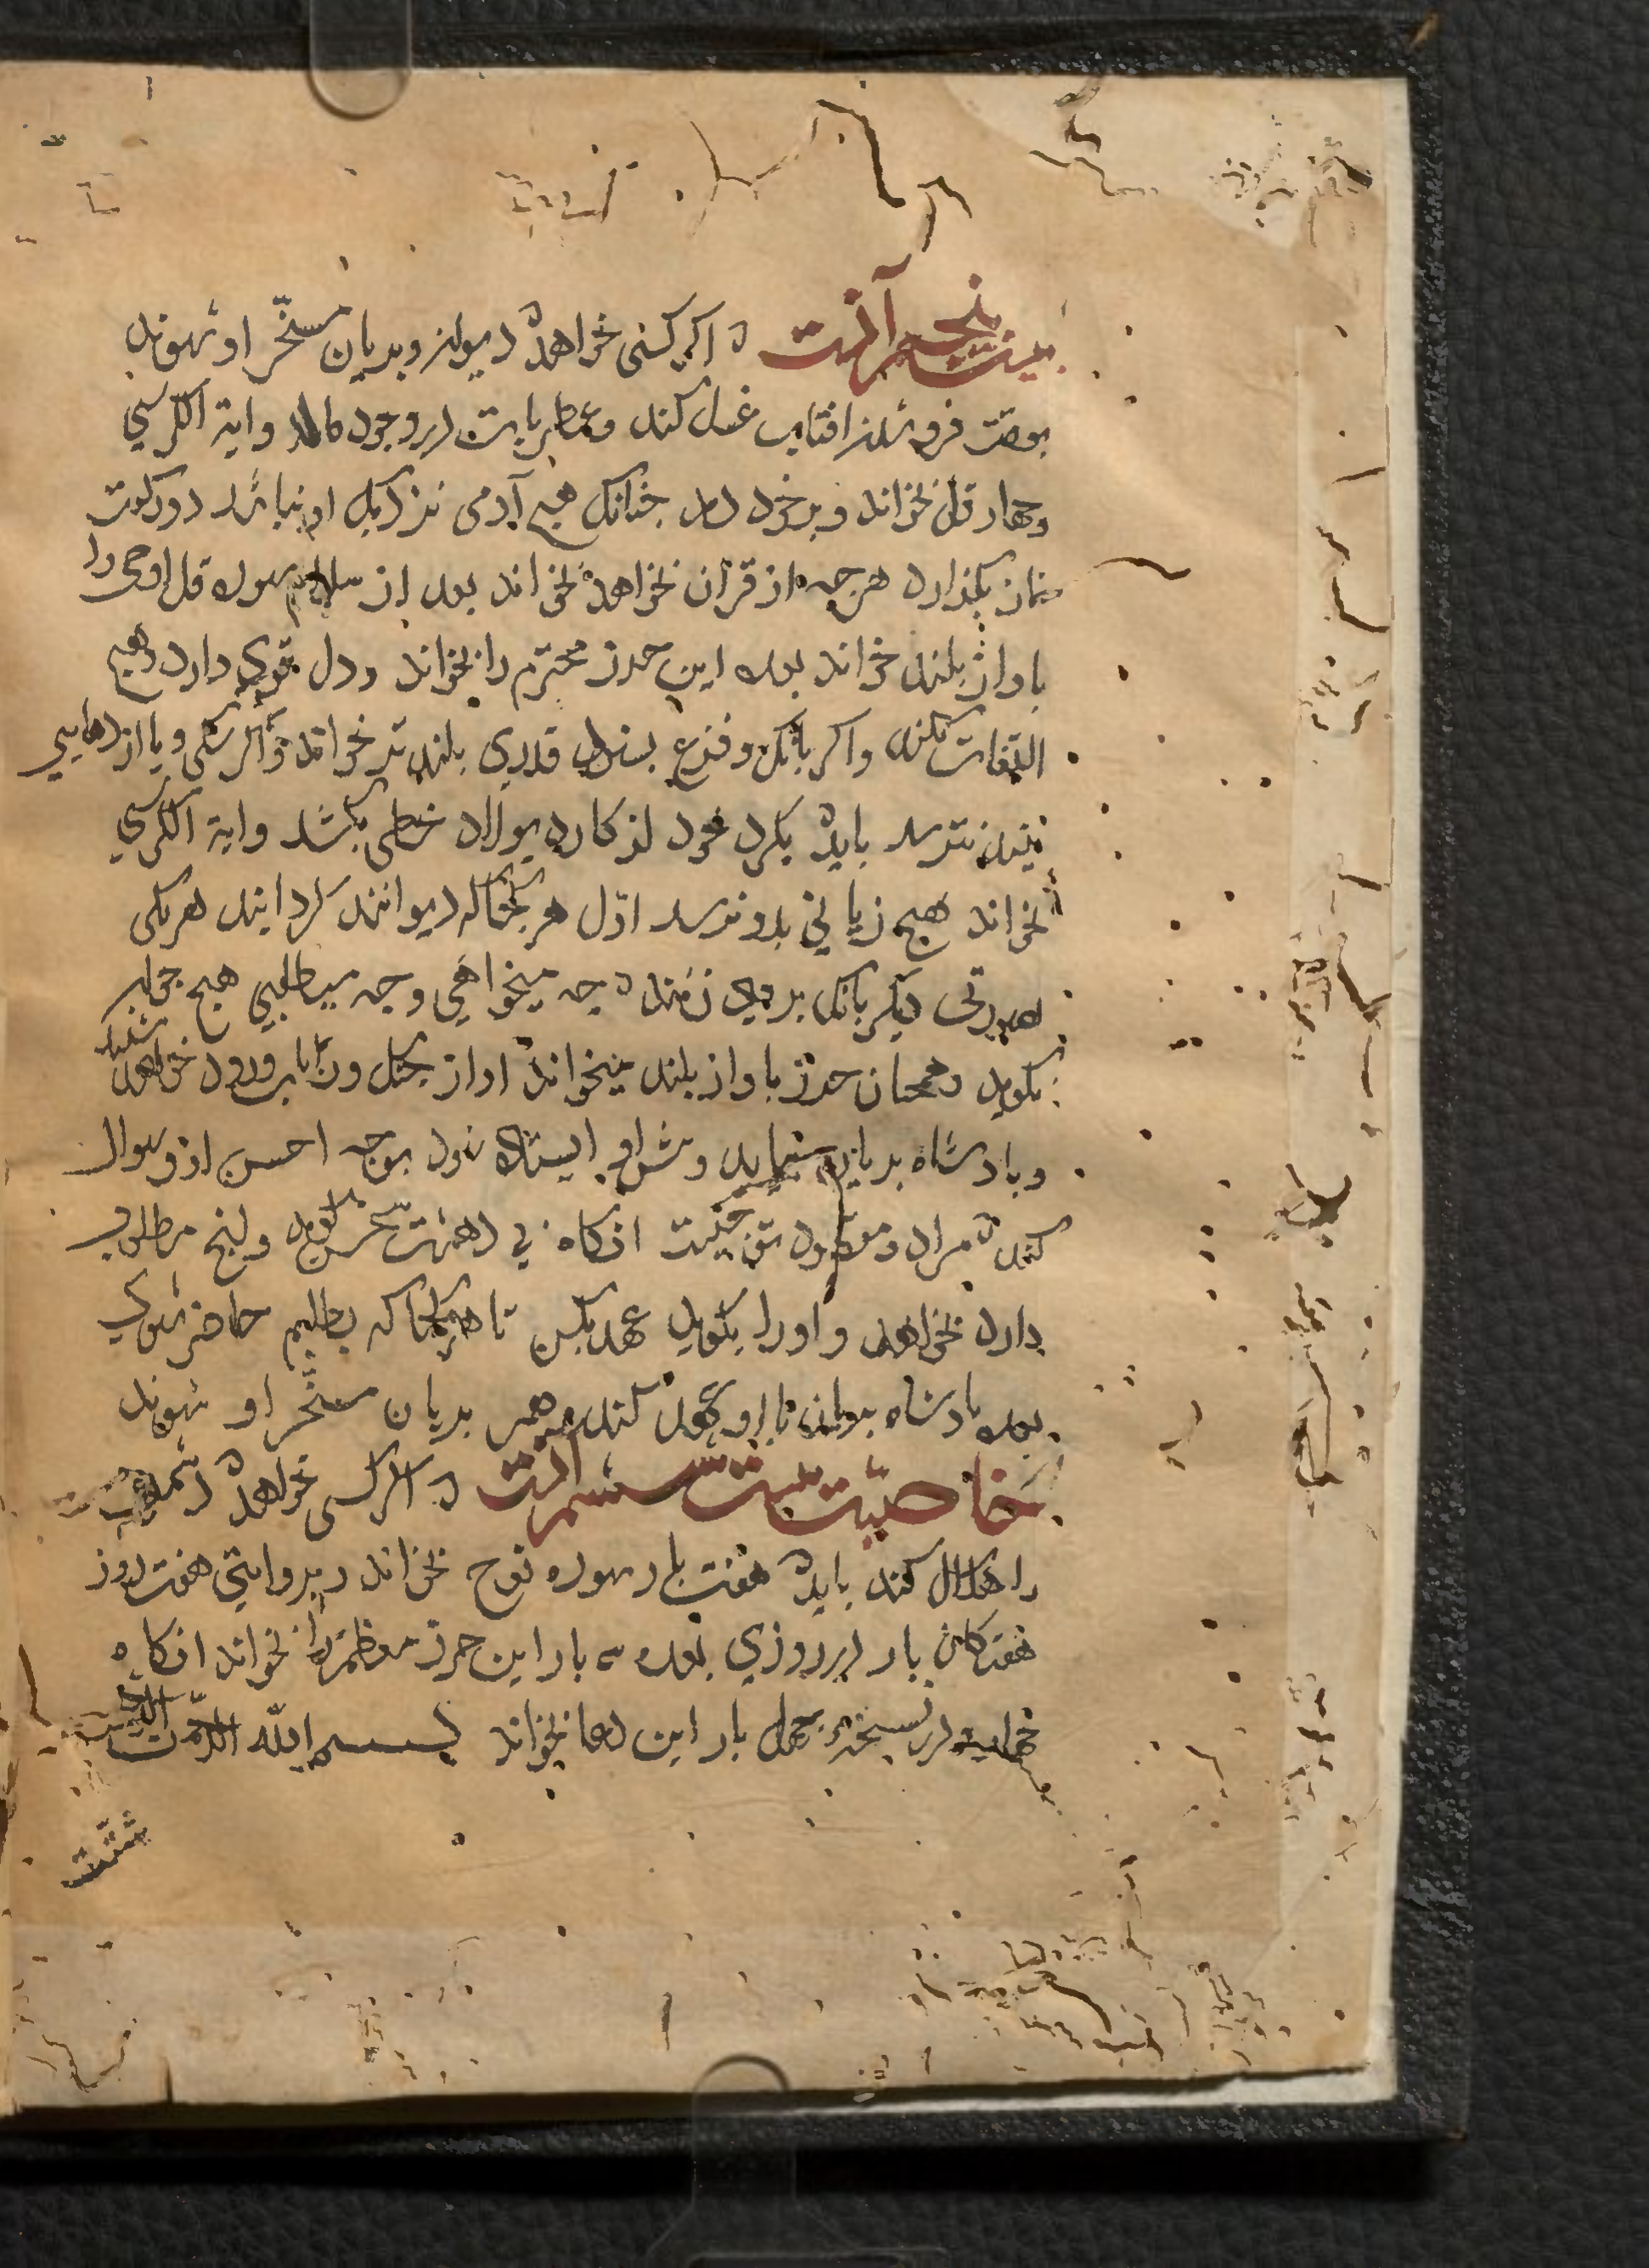 بیست پنجم آنست که اکر کسی خواهد دیوان و پریان مسخّر او شوند
بوقت فرو شدن افتاب غسل کند و عطریات در وجود مالد و ایة الکرسي
و چهار قل بخواند و بر خود دمد چنانک هیچ آدمی نزدیک او نباشد دو رکعت
نماز بکذارد هرچه از قران بخواهد بخواند بعد از سلام سوره قل اوحی را
باواز بلند خواند بعده این حرز محترم را بخواند و دل قوی دارد و هیچ
التفات نکند و اکر بانک و فزع بشنود قدری بلند تر خواند و اکر شکی و یا از دهایی
بیند نترسد باید بکرد خود از کارد پولاد خطی بکشد و ایة الکرسي
بخواند هیچ زیانی بدو نرسد اوّل هر کجا که دیوانند کرد ایند هر یکی
صورتی دیکر بانک بر وی زنند که چه میخواهی و چه میطلبی هیچ جواب
نکوید و همچنان حرز باواز بلند میخواند اواز جنک و رباب و رود خواهد شنید
و بادشاه پریان بیاید و پیش او ایستاده شود بوجه احسن ازو سوال
کند که مراد و مقصود تو چیست انکاه بی دهشت سخن کوید و انچ مطلوب
دارد بخواهد و او را بکوید عهد بکن تا هر کجا که بطلبم حاضر شوی
بعده بادشاه پریان با او عهد کند و همه پریان مسخّر او شوند
خاصیّت بیست ششم آنست که اکر کسی خواهد دشمن
را هلاک کند باید هفت بار سوره نوح بخواند و بروایتی هفت روز
هفتکان بار هر روزی بعده سه بار این حرز معظم را بخواند انکاه
چهل بار این دعا بخواند بسم الله الرّحمن الرحیم